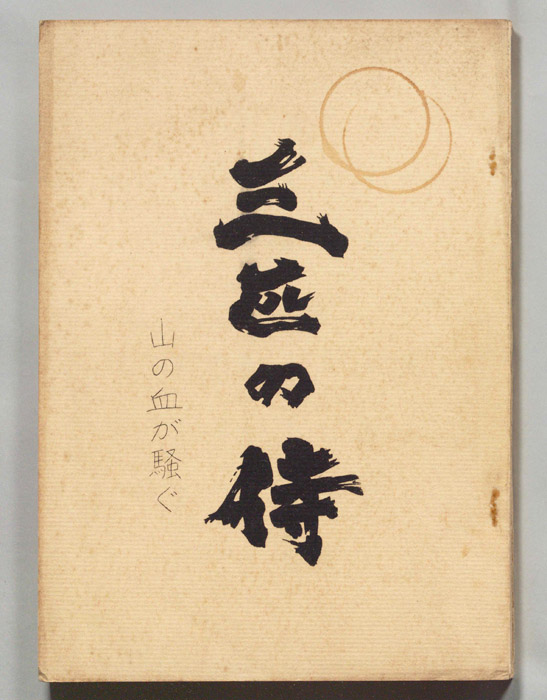 三匹の侍
山の血が騒ぐ